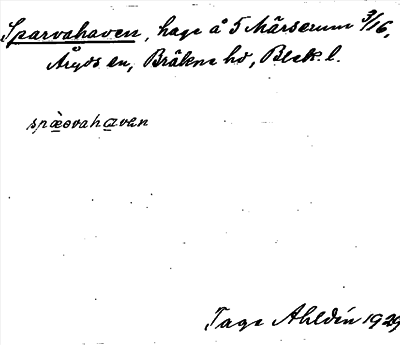 Sparvahaven, hage å 5 Märserum 3/16,
Åryds sn, Bräkne hd, Blek. l.
spæ̀rvahavan
Tage Ahldén 1929